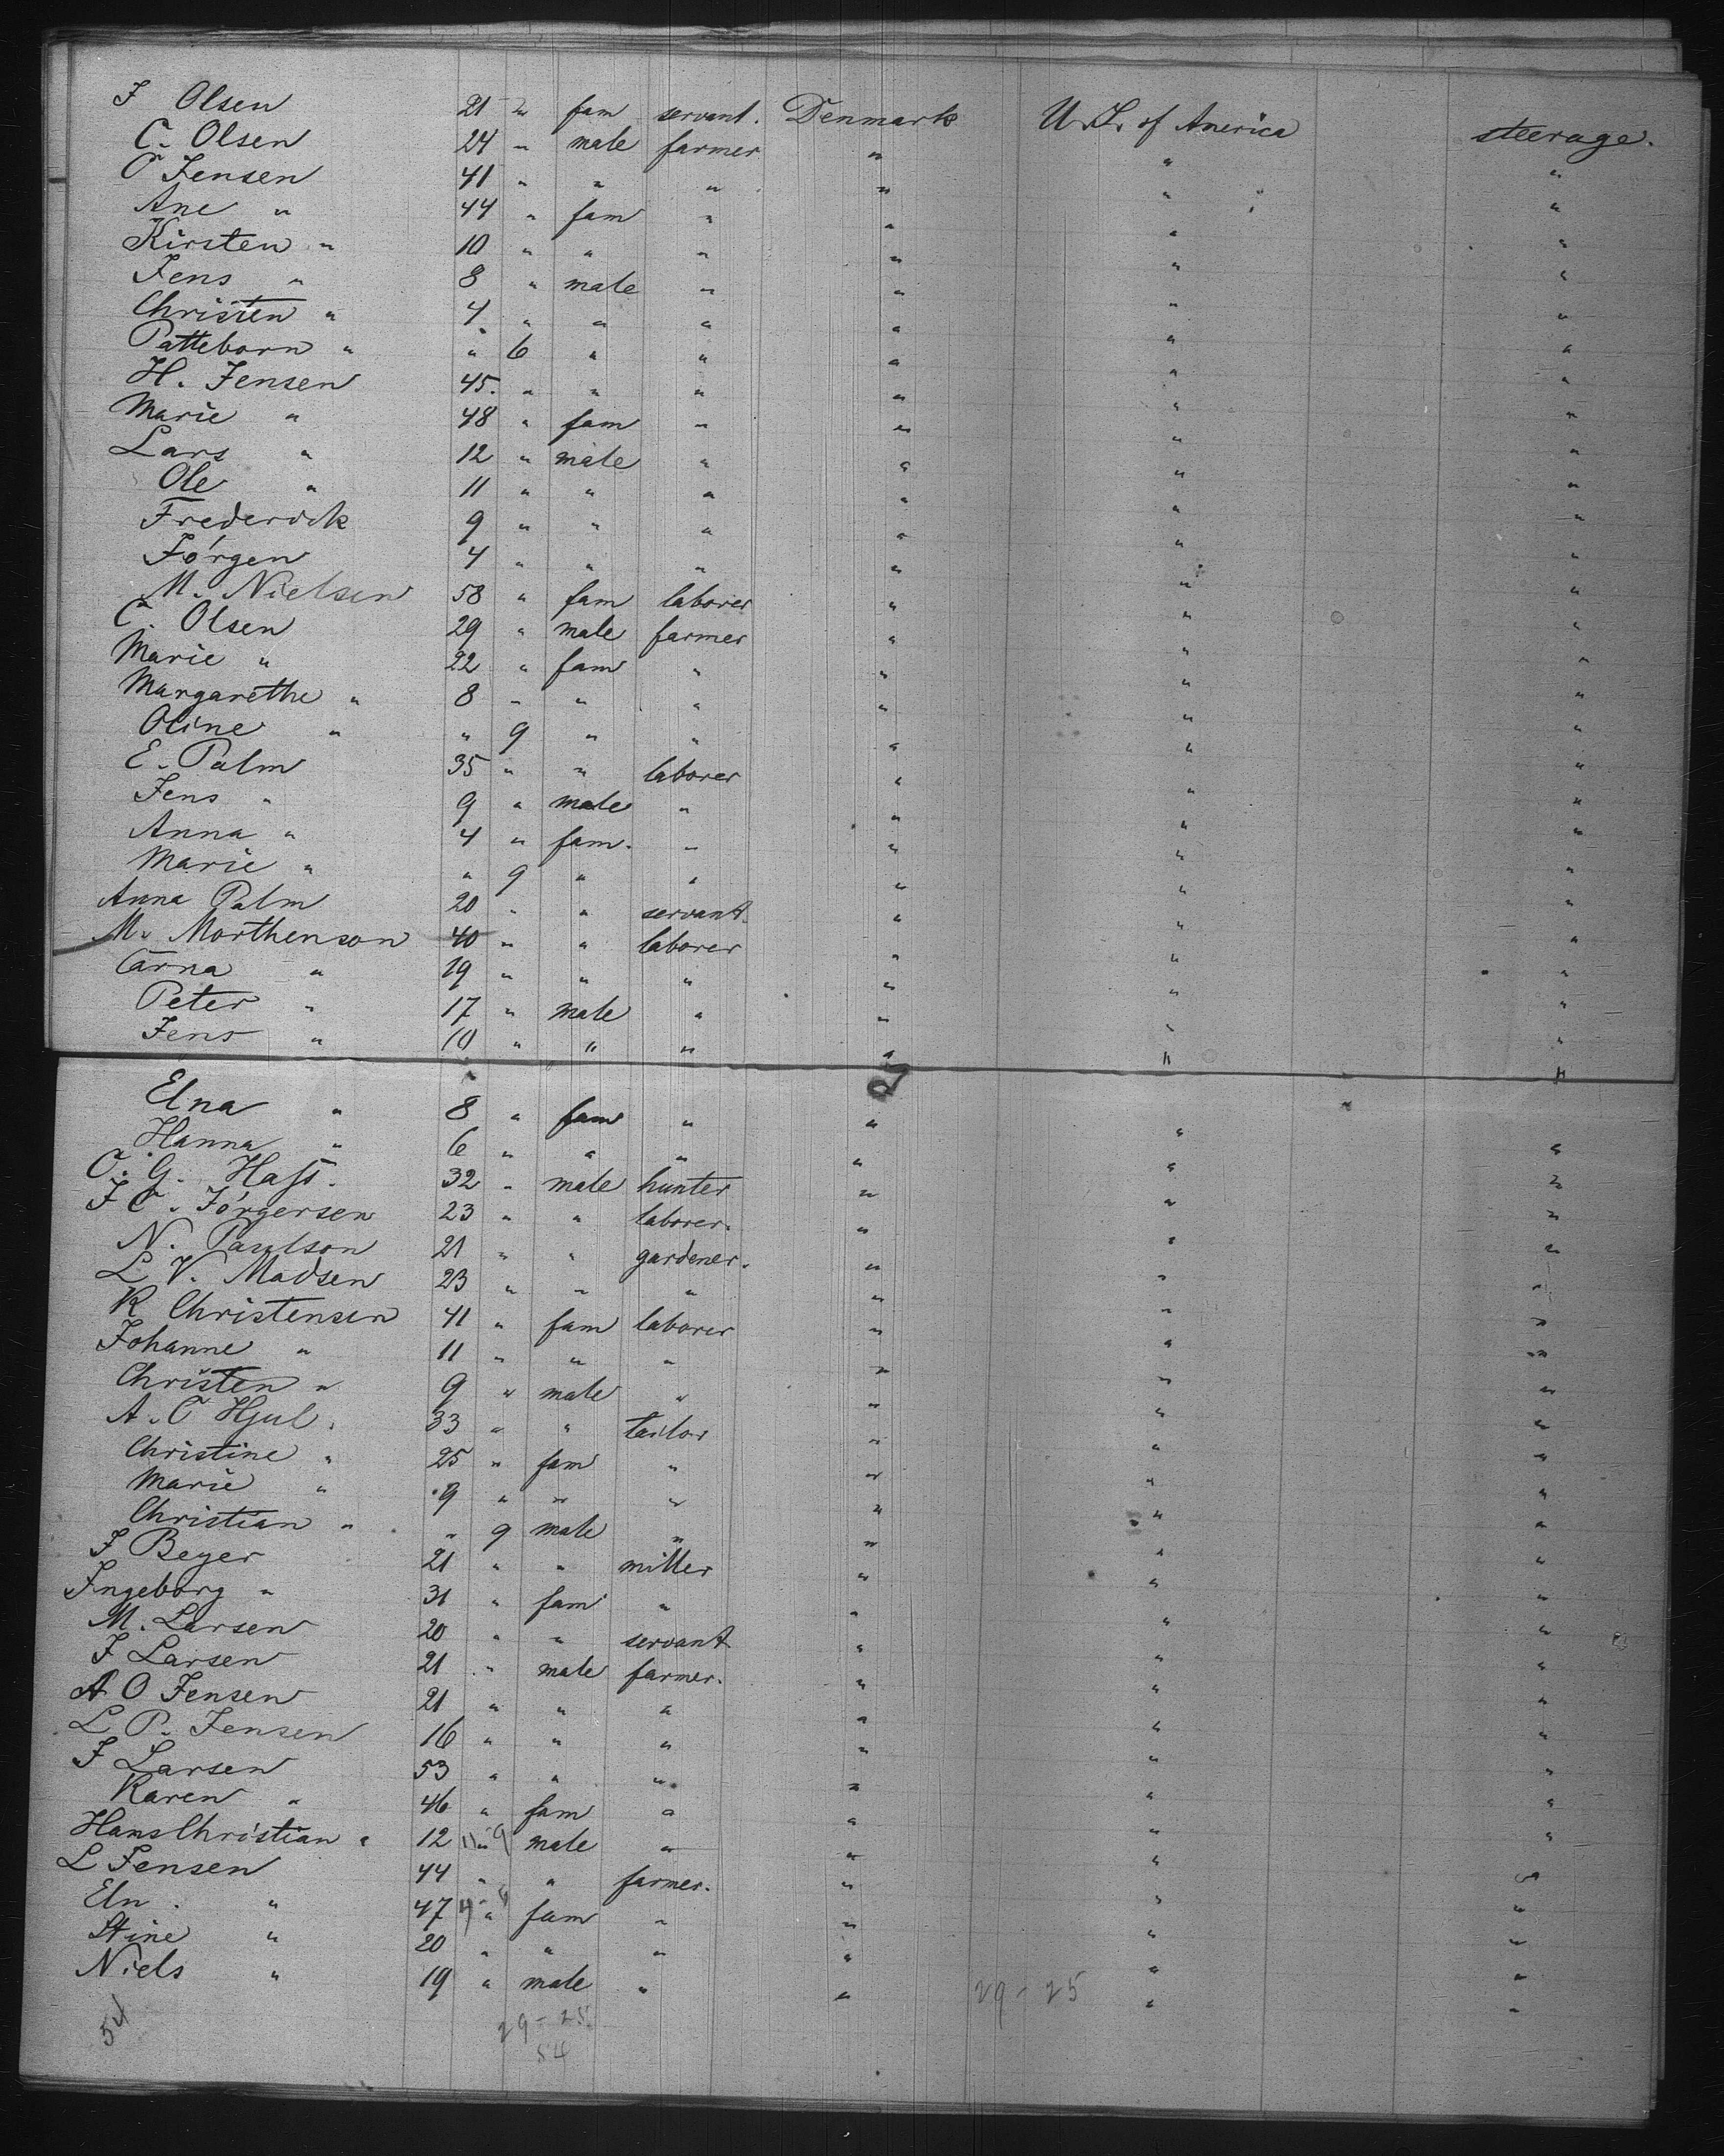 J Olsen 21 " fam servant. Denmark U. S. of America steerage.
C. Olsen 24 " male farmer " " "
C Jensen 41 " " " " " "
Ane " 44 " fam " " " "
Kirsten " 10 " " " " " "
Jens " 8 " male " " " "
Christen " 4 " " " " " "
Patteborn " " 6 " " " " "
H. Jensen 45. " " " " " "
Marie " 48 " fam " " " "
Lars " 12 " male " " " "
Ole " 11 " " " " " "
Frederick 9 " " " " " "
Jörgen 4 " " " " " "
M. Nielsen 58 " fam laborer " " "
C. Olsen 29 " male farmer " " "
Marie " 22 " fam " " " "
Margarethe " 8 " " " " " "
Oline " " 9 " " " " "
E. Palm 35 " " laborer " " "
Jens " 9 " male " " " "
Anna " 4 " fam. " " " "
Marie " " 9 " " " " "
Anna Palm 20 " " servant. " " "
M. Morthenson 40 " " laborer " " "
Carna " 19 " " " " " "
Peter " 17 " male " " " "
Jens " 10 " " " " " "
2
Elna " 8 " fam " " " "
Hanna " 6 " " " " " "
C. G. Hass. 32 " male hunter " " "
J C. Jörgersen 23 " " laborer. " " "
N. Paulson 21 " " gardener. " " "
L V. Madsen 23 " " " " " "
K Christensen 41 " fam laborer " " "
Johanne " 11 " " " " " "
Christen " 9 " male " " " "
A. C Hjul. 33 " " tailor " " "
Christine " 25 " fam " " " "
Marie " 9 " " " " " "
Christian " " 9 male " " " "
J Beyer 21 " " miller " " "
Ingeborg " 31 " fam " " " "
M. Larsen 20 " " servant " " "
J Larsen 21 " male farmer. " " "
A O Jensen 21 " " " " " "
L P. Jensen 16 " " " " " "
J Larsen 53 " " " " " "
Karen " 46 " fam " " " "
Hans Christian " 12 " male " " " "
L Jensen 44 " " farmer. " " "
Eln. " 47 " fam " " " "
Stine " 20 " " " " " "
Niels " 19 " male " " " "
29 - 25
54 29 - 25
54